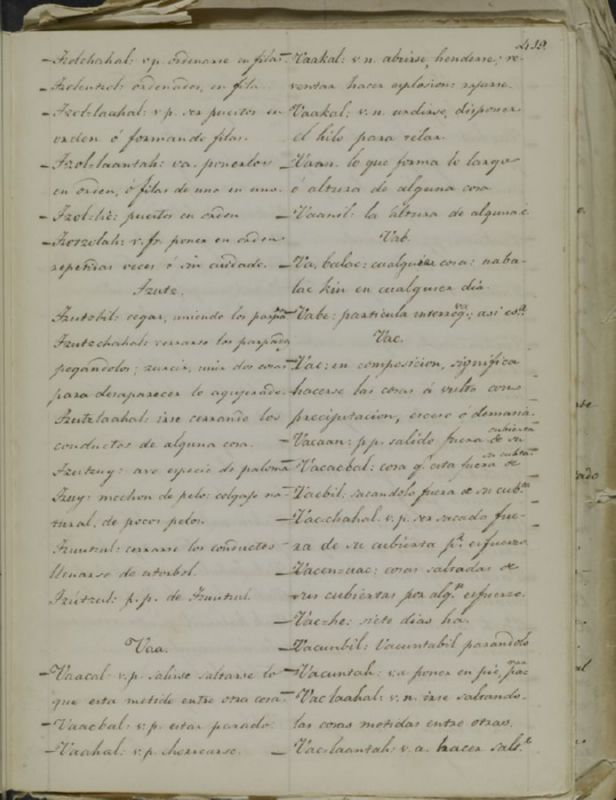 419
– Tzolchahal: v.p. ordenarse en filas
– Tzolentzol: ordenados, en fila.
– Tzol-laahal: v.p. ser puestos en
orden ó formando filas.
– Tzol-laantah: v.a. ponerlos
en orden, ó filas de uno en uno.
– Tzol-lic: puestos en orden
– Tzotzolah: v. fr. poner en orden
repetidas veces ó sin cuidado.
Tzutz.
Tzutzbil: cegar, uniendo los
Tzutzchahal: cerrarse los
pegandolos; zurcir, unir dos cosas
para desaparecer lo agujerado.
Tzutzlaahal: irse cerrando los
conductos de alguna cosa.
Tzutzuy: ave especie de paloma
Tzuy: mechon de pelo: colgajo na-
tural, de pocos pelos.
Tzuutzul: cerrarse los conductos
llenarse de
Tzútzul: p.p. de Tzuutzul.
Vaa.
– Vaacal: v.p. salirse saltarse lo
que esta metido entre otra cosa.
– Vaacbal: v.p. estar parado.
– Vaahal: v.p.
– Vaakal: v.n. abrirse, henderse; re-
ventar hacer esplosion: rajarse.
Vaakal: v.n. urdirse, disponer
el hilo para telar.
– Vaan. lo que forma lo largo
ó altura de alguna cosa
– Vaanil: la altura de alguna c.
Vab.
– Va, balac: cualquiera cosa: naba-
lac kin en cualquier dia.
– Vabe: particula interrog.va; asi es.
Vac.
– Vac: en composicion, significa
hacerse las cosas á vulto con
precipitacion, esceso ó demasia.
– Vacaan: p.p. salido fuera de su cubierta
– Vacacbal: cosa q.e esta fuera de su cubta.
– Vacbil: sacandolo fuera de su cub.ta
– Vac-chahal. v.p. ser sacado fue-
ra de su cubierta p.r esfuerzo.
– Vacen-uac: cosas saltadas de
sus cubiertas por alg.n esfuerzo.
– Vac-he: siete dias há.
– Vacunbil: Vacuntabil parandolo
– Vacuntah: v.a poner en pié,
– Vac laahal: v.n. irse saltando
las cosas metidas entre otras.
– Vac-laantah: v.a. hacer salt.r